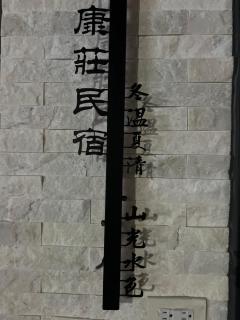 康莊民宿
冬溫夏清
山光水色